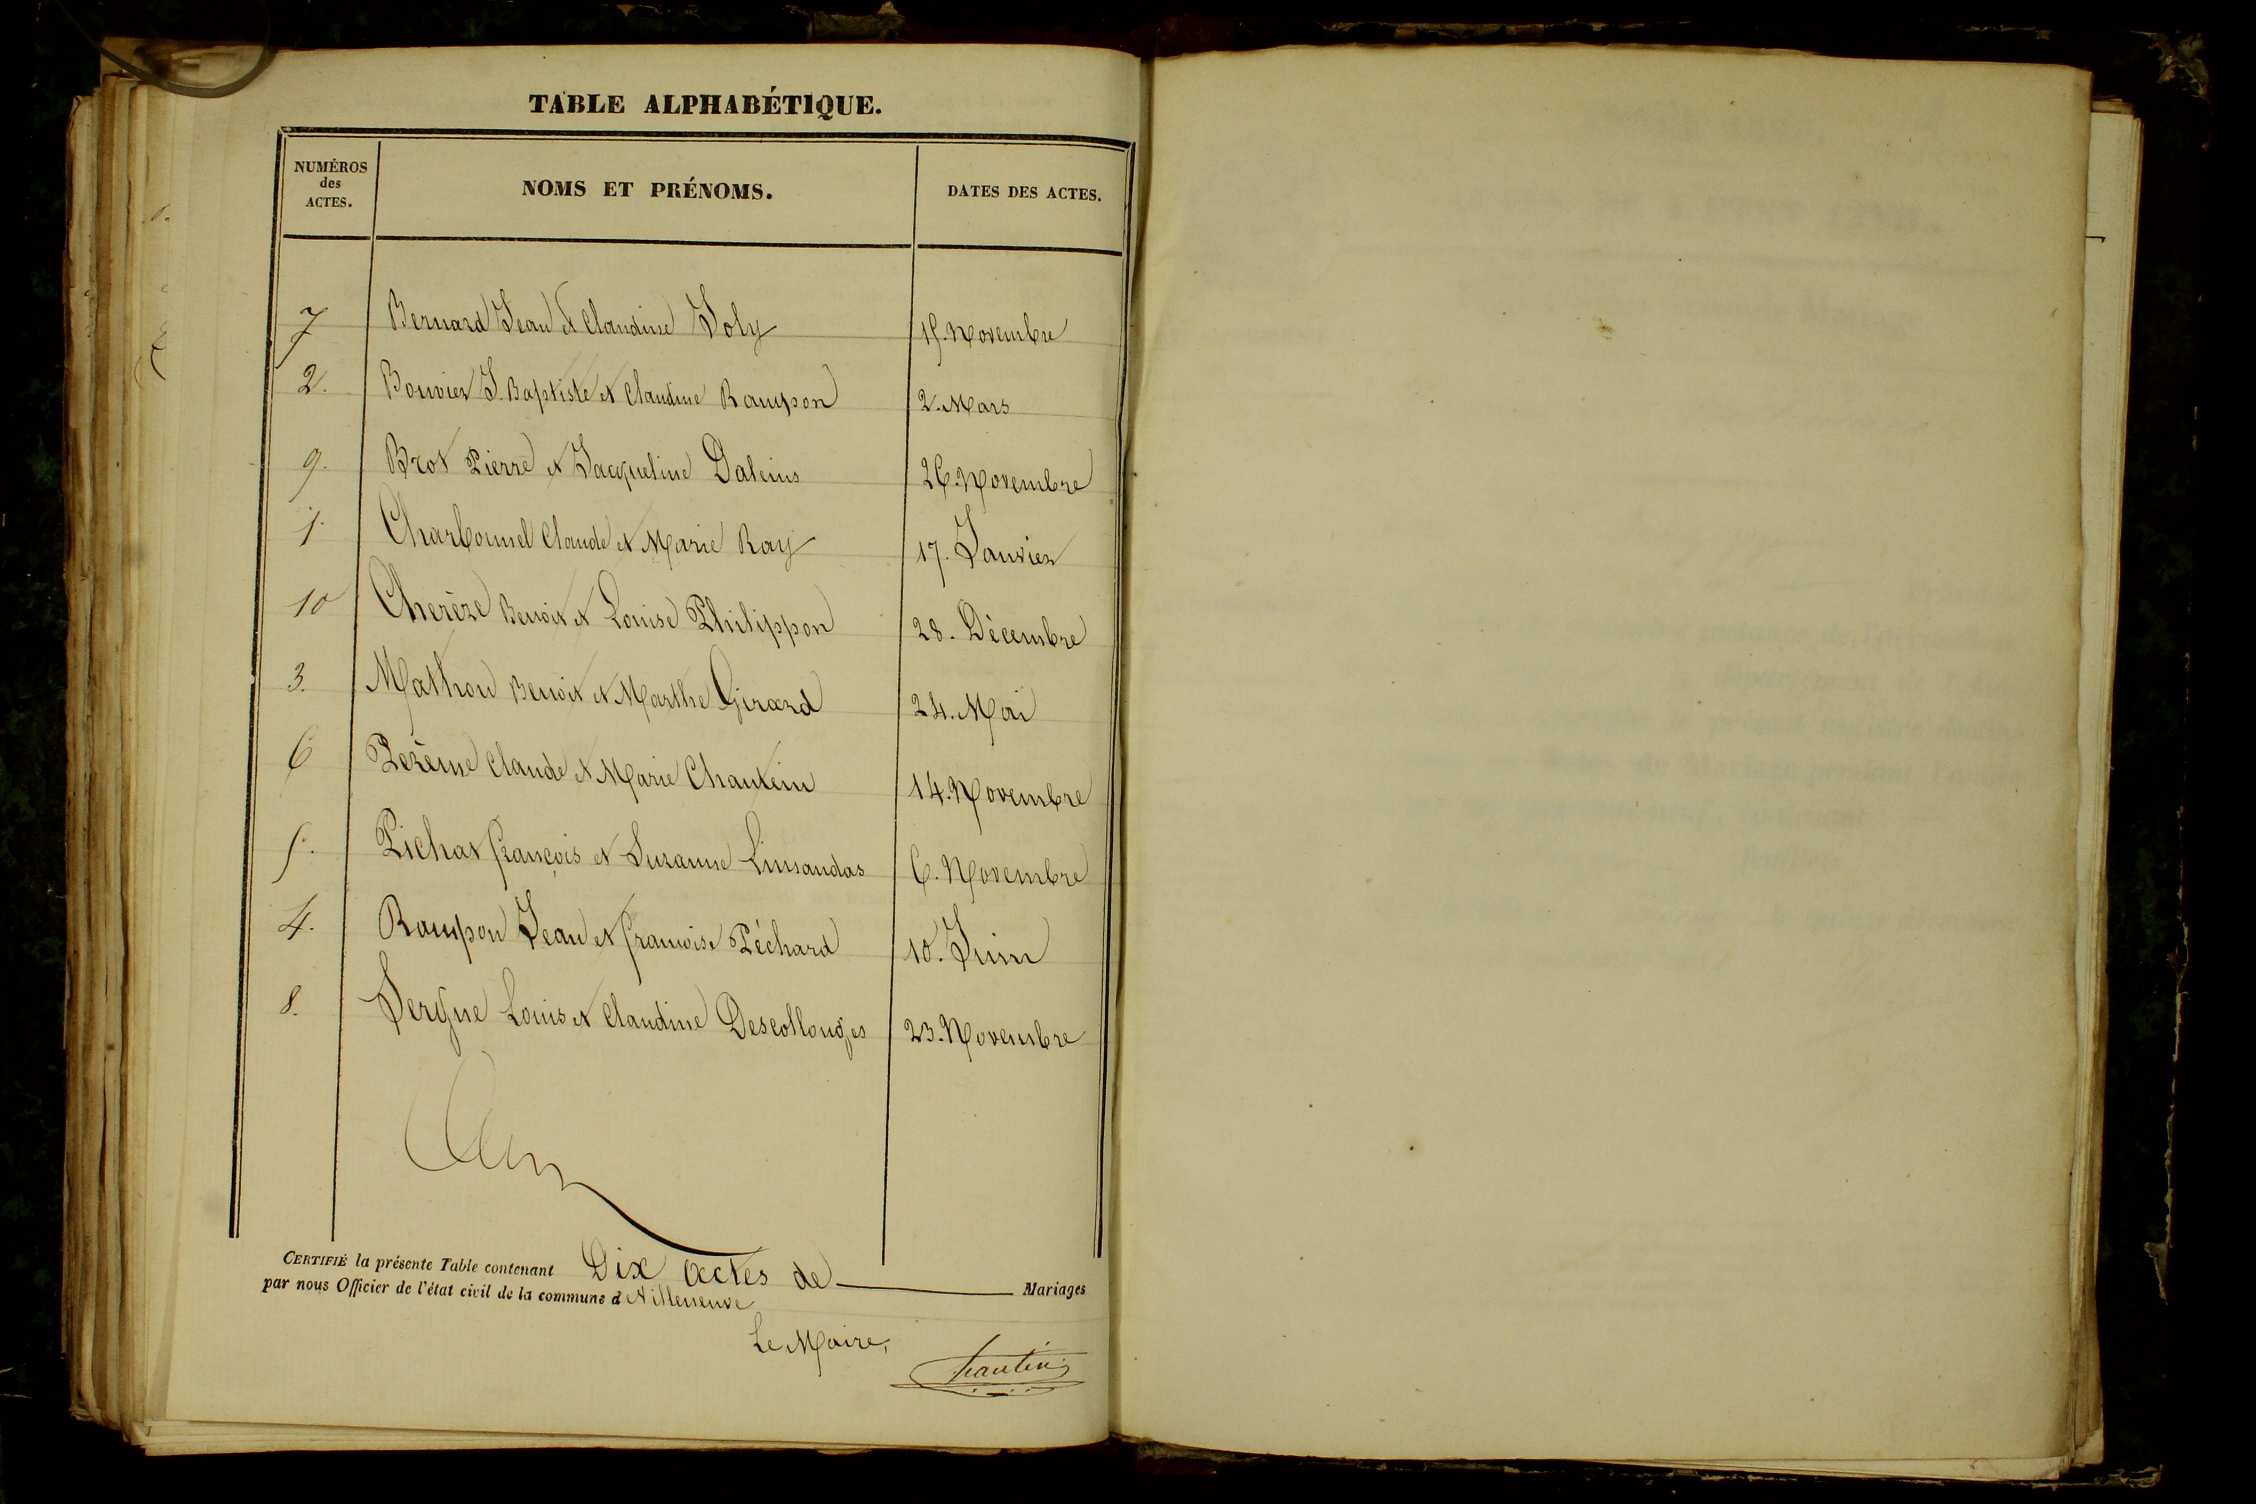 TABLE ALPHABÉTIQUE.
NUMÉROS des ACTES.
NOMS ET PRÉNOMS.
DATES DES ACTES.
7 Bernard Jean et Claudine Joly 15. Novembre
2. Bouvier J. Baptiste et Claudine Rampon 2. Mars
9. Brot Pierre et Jacqueline Daleins 26. Novembre
1. Charbonnel Claude et Marie Ray 17. Janvier
10 Cherèze Benoit et Louise Philippon 28. Décembre
3. Mathon Benoit et Marthe Girard 24. Mai
6 Pezème Claude et Marie Chantein 14. Novembre
5. Pichat François et Suzanne Linsandas 6. Novembre
4. Rampon Jean et Françoise Péchard 10. Juin
8. Sergne Louis et Claudine Descollonges 23. Novembre
CERTIFIÉ la présente Table contenant Dix actes de Mariages
par nous Officier de l'état civil de la commune d Villeneuve
Le Maire,
Chantin